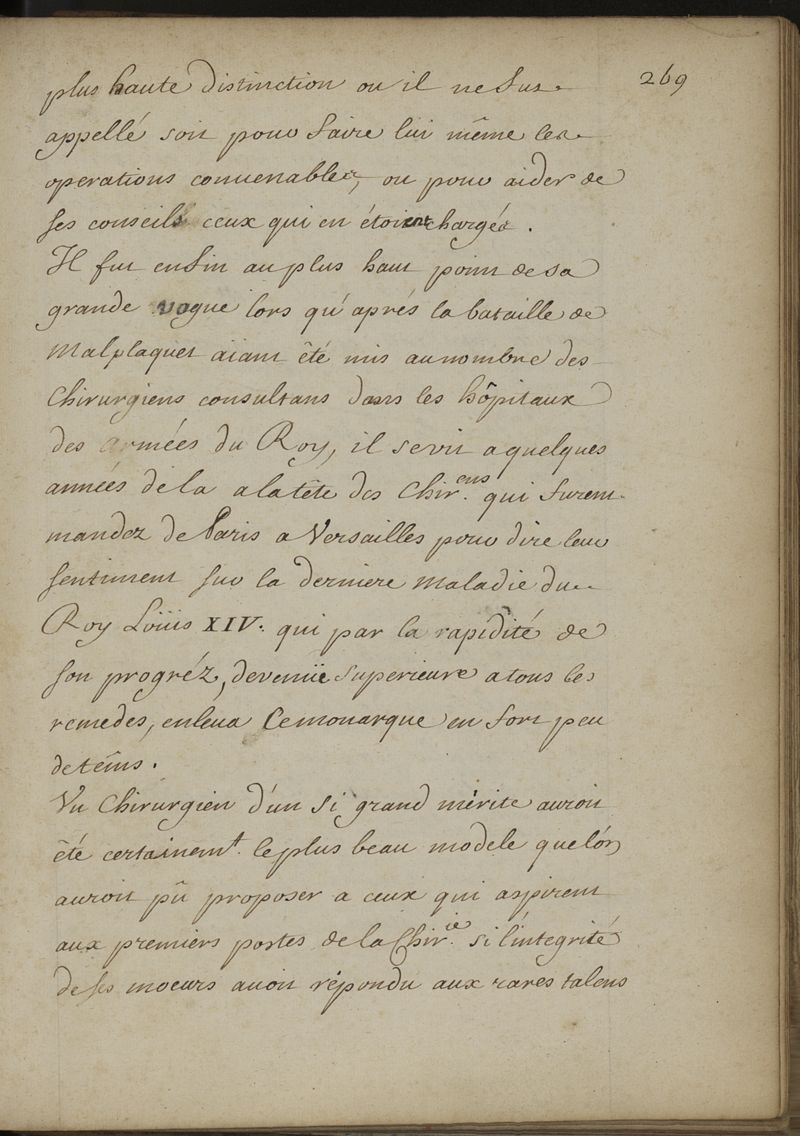 269
plus haute distinction ou il ne fut
appellé soit pour faire lui même les
operations convenables, ou pour aider de
ses conseils ceux qui en étoient chargés.
Il fut enfin au plus haut point de sa
grande vogue lors qu'aprés la bataille de
Malplaquet aiant êté mis au nombre des
Chirurgiens consultans dans les hôpitaux
des armées du Roy, il se vit a quelques
années de la a la tête des Chir.ens qui furent
mandez de Paris a Versailles pour dire leur
sentiment sur la derniere maladie du
Roy Loüis XIV. qui par la rapidité de
son progréz, devenüe superieure a tous les
remedes, enleva ce monarque en fort peu
de têms.
Un Chirurgien d'un si grand mérite auroit
êté certainemt. le plus beau modele que lón
auroit pû proposer a ceux qui aspirent
aux premiers postes de la Chir.ie si l'integrité
de ses moeurs avoit répondu aux rares talens